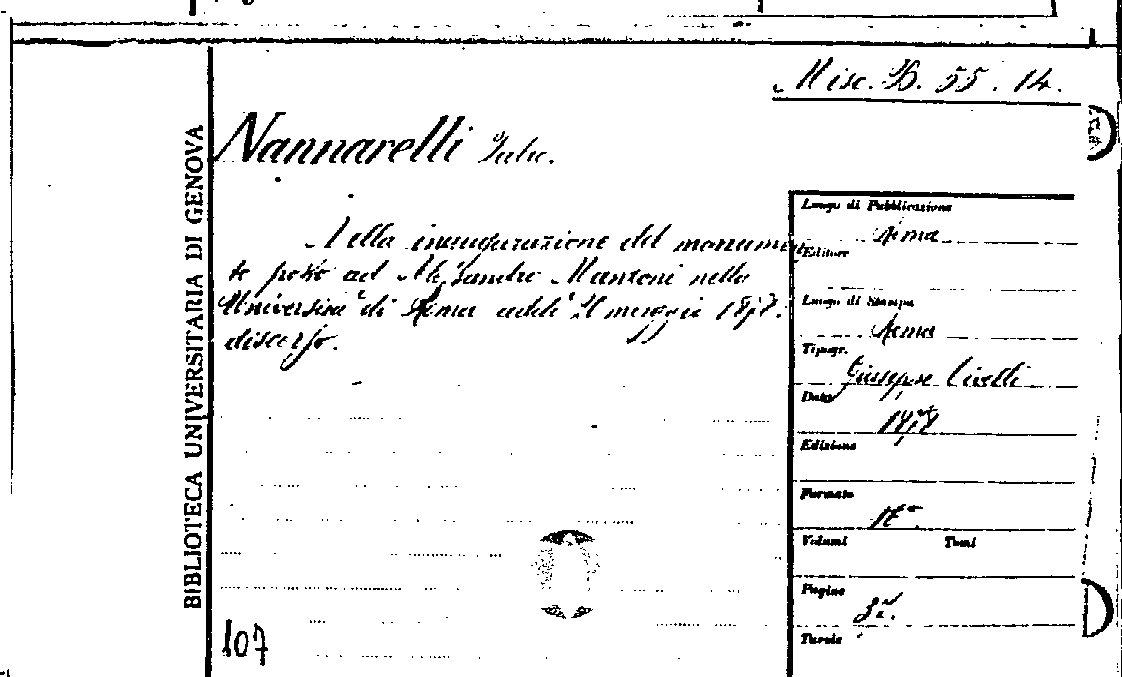 Misc. B. 55. 14.
Nannarelli
Nella inaugurazione del monumen
to posto ad Alessandro Mantoni nella
Università di Roma addì maggio
discorso.
BIBLIOTECA UNIVERSITARIA DI GENOVA
Luogo di Pubblicazione
Roma
Editore
Luogo di Stampa
Roma
Tipogr.
Giuseppe Civelli
Data
Edizione
Formato
Volumi Tomi
Pagine
Tavole
107